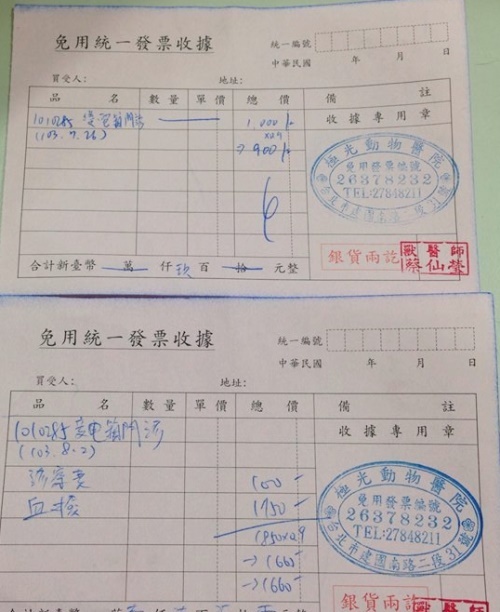 免用統一發票收據
統一編號
中華民國 年 月 日
買受人: 地址:
品 名 數量 單價 總 價 備 註
1010285 門診 1,000
(103.7.26) x0.9
→ 900
收據專用章
極光動物醫院
免用發票編號
26378232
TEL:27848211
台北市建國南路二段31號
銀貨兩訖
獸醫師
蔡仙瑩
合計新臺幣 萬 仟 玖 百 拾 元整
免用統一發票收據
統一編號
中華民國 年 月 日
買受人: 地址:
品 名 數量 單價 總 價 備 註
1010285 門診
(103.8.2)
診察費 100
血檢 1750
1850x0.9
→ 1665
→ 1665
收據專用章
極光動物醫院
免用發票編號
26378232
TEL:27848211
台北市建國南路二段31號
銀貨兩訖
獸醫師